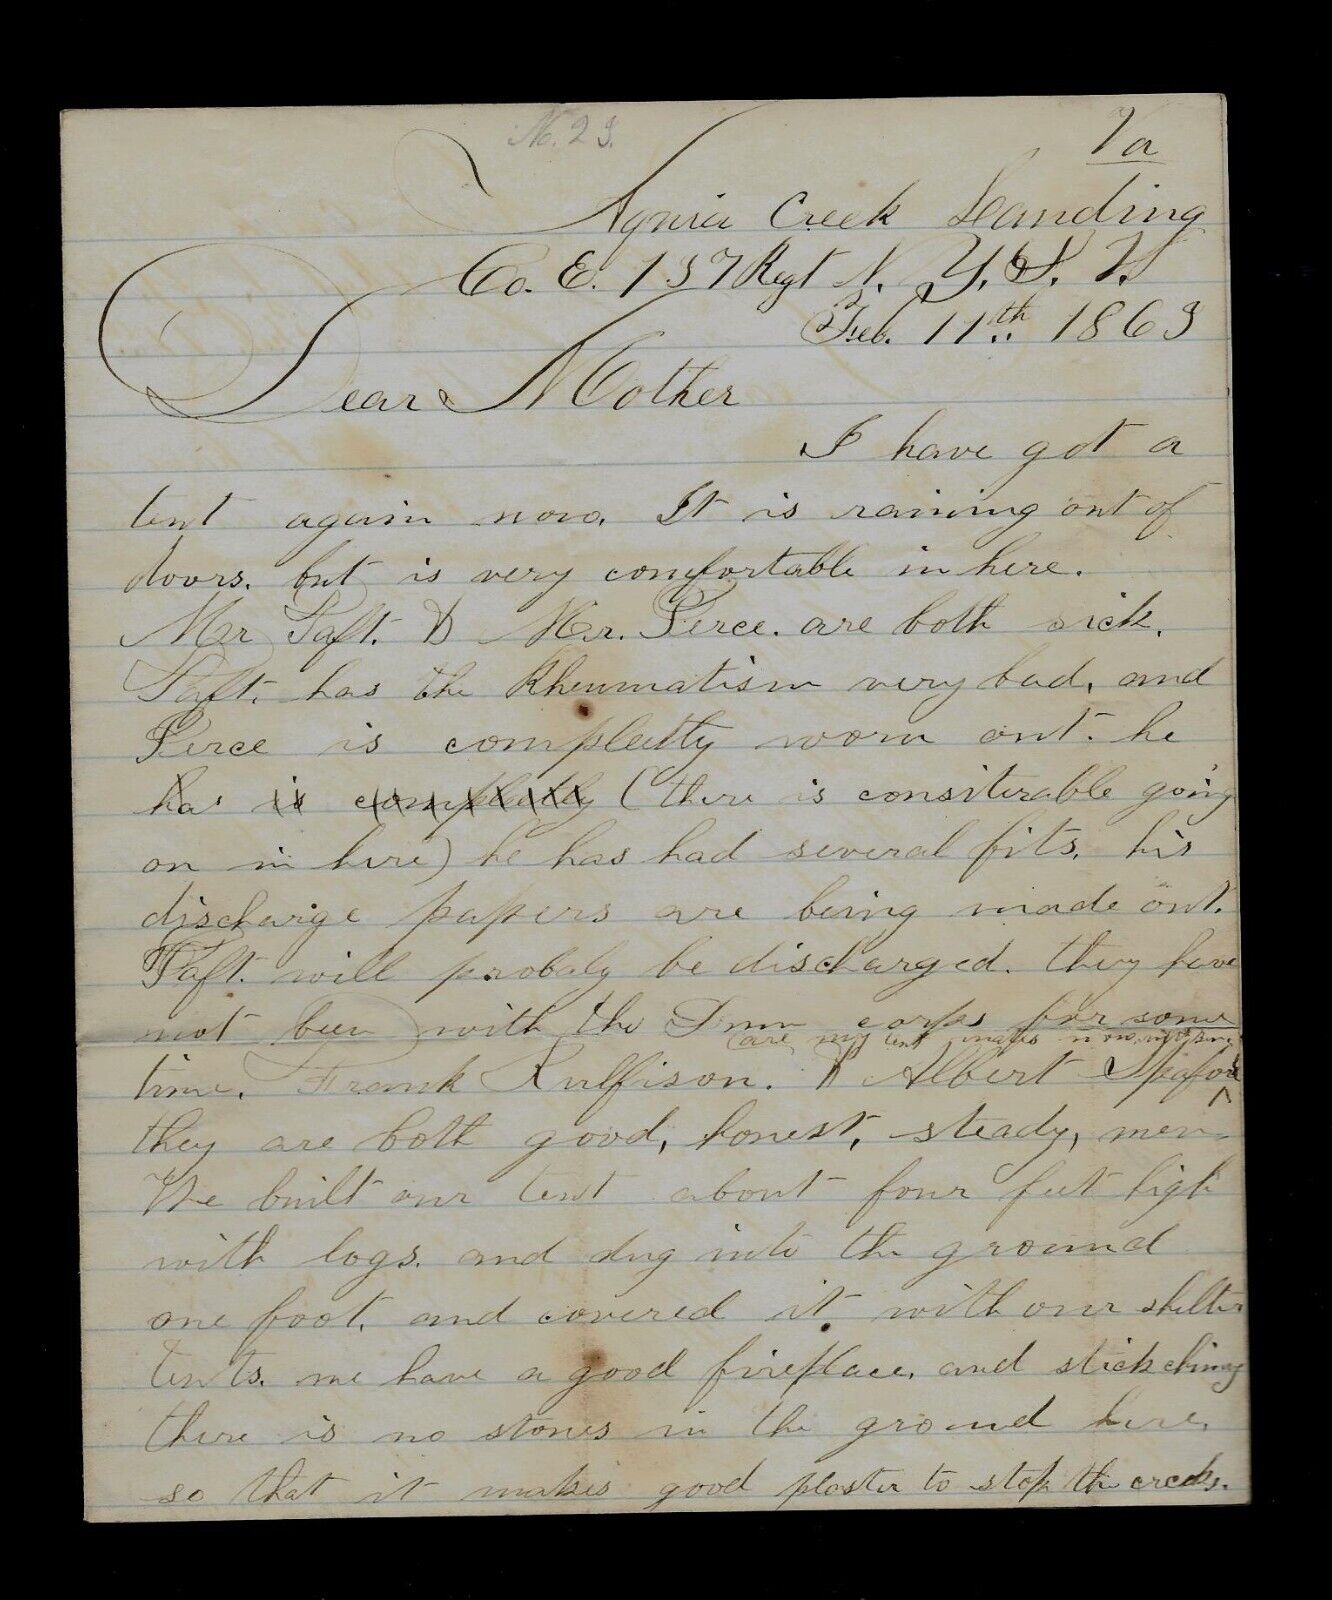 N. 23.
Va
Aquia Creek Landing
Co. E. 137 Regt N. Y. S. V.
Feb. 11th. 1863
Dear Mother
I have got a
tent again now. It is raining out of
doors. but is very comfortable in here.
Mr Taft. & Mr. Perce. are both sick.
Taft. has the Rheumatism very bad, and
Perce is compleetly worn out. he
has is compleetly (there is considerable going
on in here) he has had several fits. his
discharge papers are being made out.
Taft. will probaly be discharged. they have
not been with the corps for some
are my tent mates now,
time. Frank Rulfison. & Albert Spaford
they are both good, honest, steady, men.
We built our tent about four feet high
with logs. and dug into the ground
one foot, and covered it with our shelter
tents. we have a good fireplace, and stick chimny
there is no stones in the ground here,
so that it makes good plaster to stop the cracks.